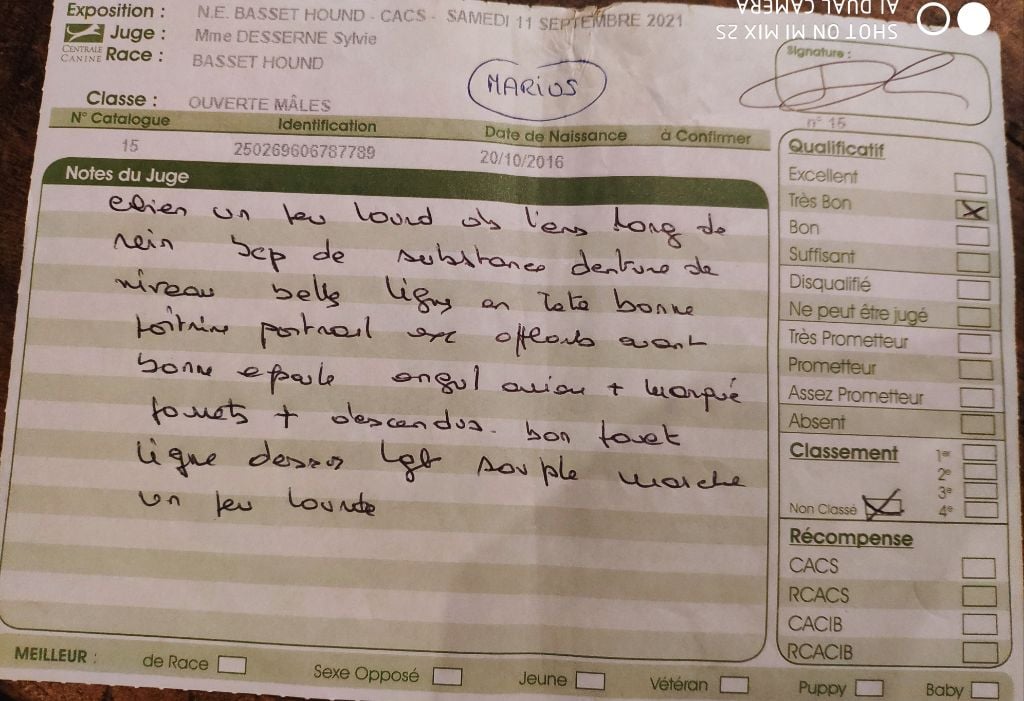 Exposition : N.E. BASSET HOUND - CACS - SAMEDI 11 SEPTEMBRE 2021
Juge : Mme DESSERNE Sylvie
CENTRALE CANINE
Race : BASSET HOUND
MARIUS
Classe : OUVERTE MÂLES
N° Catalogue Identification Date de Naissance à Confirmer
15 250269606787789 20/10/2016
Notes du Juge
chien un peu lourd ds l'ens long de
rein bcp de substance denture de
niveau belle ligne en tete bonne
poitrine poitrail exc avant
bonne epaule angul + marqué
+ descendus. bon fouet
ligne dessus lgt souple marche
un peu lourde
SHOT ON MI MIX 2S
AI DUAL CAMERA
Signature :
n° 15
Qualificatif
Excellent
Très Bon
Bon
Suffisant
Disqualifié
Ne peut être jugé
Très Prometteur
Prometteur
Assez Prometteur
Absent
Classement 1er
2e
3e
Non Classé 4e
Récompense
CACS
RCACS
CACIB
RCACIB
MEILLEUR : de Race Sexe Opposé Jeune Vétéran Puppy Baby